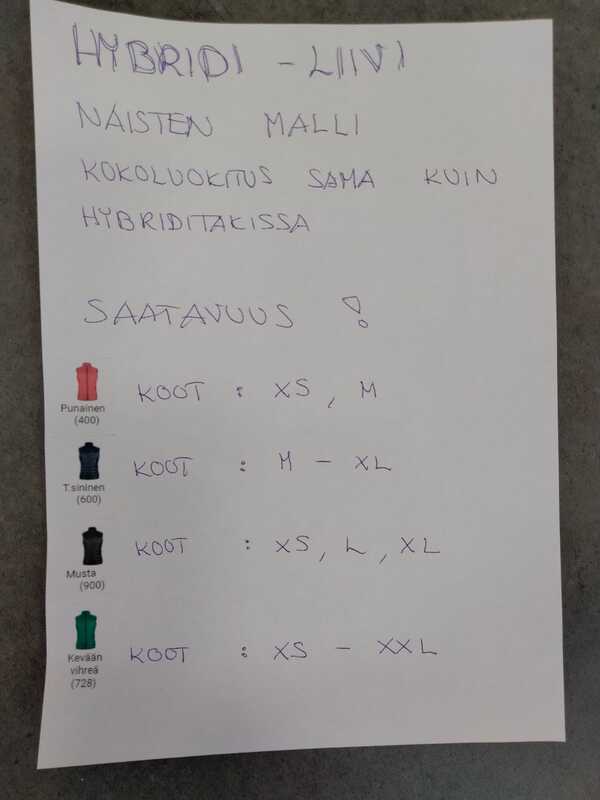 HYBRIDI - LIIVI
NAISTEN MALLI
KOKOLUOKITUS SAMA KUIN
HYBRIDITAKISSA
SAATAVUUS !
Punainen
(400)
KOOT : XS, M
T.sininen
(600)
KOOT : M - XL
Musta
(900)
KOOT : XS, L, XL
Kevään
vihreä
(728)
KOOT : XS - XXL